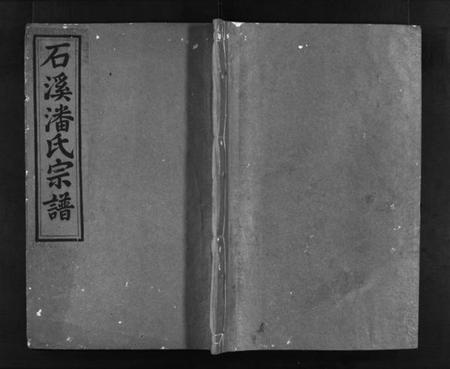 石溪潘氏宗譜